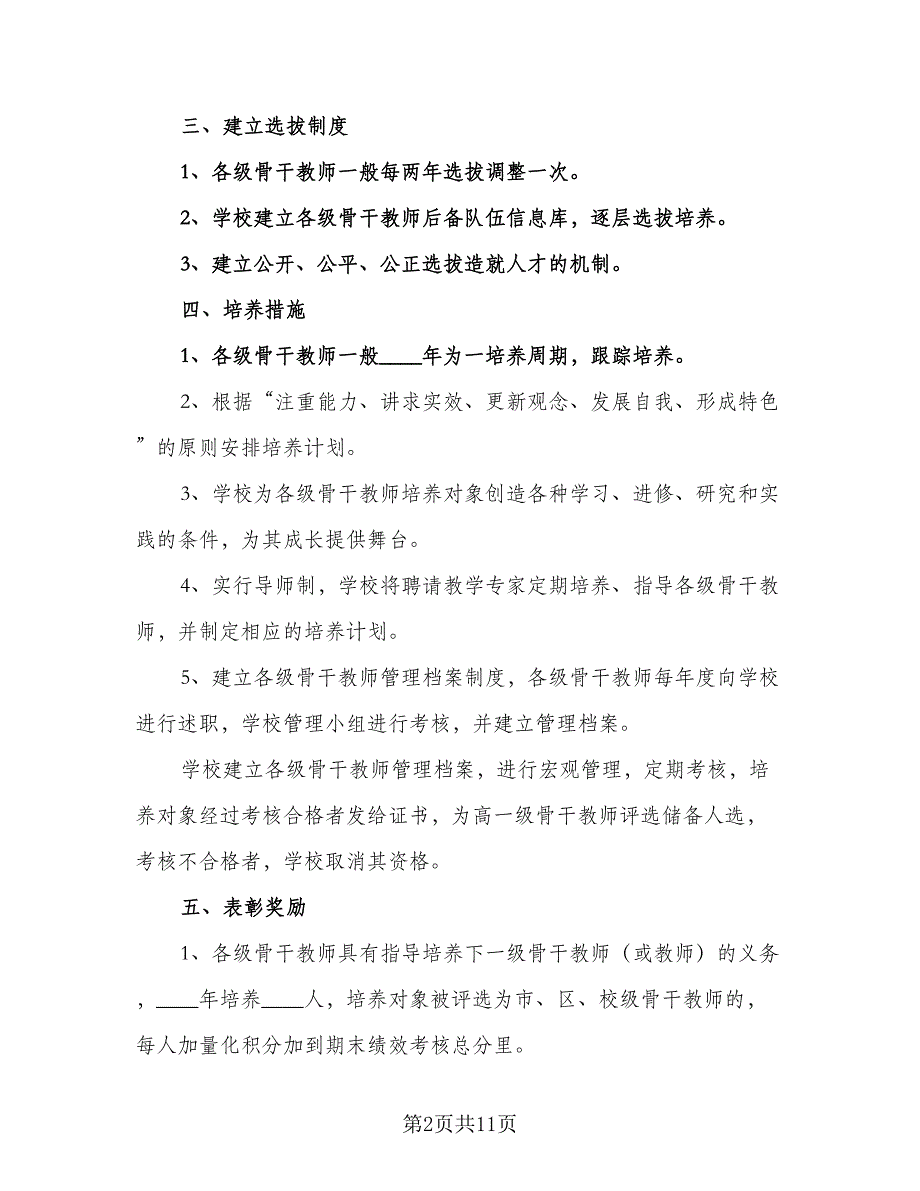 三、建立选拔制度
1、各级骨干教师一般每两年选拔调整一次。
2、学校建立各级骨干教师后备队伍信息库，逐层选拔培养。
3、建立公开、公平、公正选拔造就人才的机制。
四、培养措施
1、各级骨干教师一般____年为一培养周期，跟踪培养。
2、根据“注重能力、讲求实效、更新观念、发展自我、形成特色
”的原则安排培养计划。
3、学校为各级骨干教师培养对象创造各种学习、进修、研究和实
践的条件，为其成长提供舞台。
4、实行导师制，学校将聘请教学专家定期培养、指导各级骨干教
师，并制定相应的培养计划。
5、建立各级骨干教师管理档案制度，各级骨干教师每年度向学校
进行述职，学校管理小组进行考核，并建立管理档案。
学校建立各级骨干教师管理档案，进行宏观管理，定期考核，培
养对象经过考核合格者发给证书，为高一级骨干教师评选储备人选，
考核不合格者，学校取消其资格。
五、表彰奖励
1、各级骨干教师具有指导培养下一级骨干教师（或教师）的义务
，____年培养____人，培养对象被评选为市、区、校级骨干教师的，
每人加量化积分加到期末绩效考核总分里。
第2页共11页